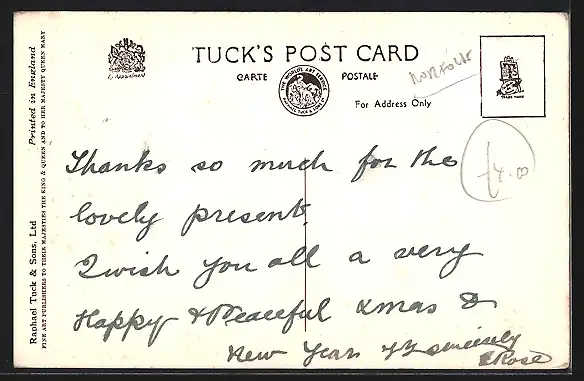 TUCK'S POST CARD
CARTE POSTALE
For Address Only
By Appointment
THE WORLD'S ART SERVICE
RAPHAEL TUCK & SONS LTD
TRADE MARK
NORFOLK
£4.00
Thanks so much for the
lovely present.
I wish you all a very
Happy & Peaceful Xmas &
New Year Yrs sincerely
E Rose
Raphael Tuck & Sons, Ltd Printed in England
FINE ART PUBLISHERS TO THEIR MAJESTIES THE KING & QUEEN AND TO HER MAJESTY QUEEN MARY